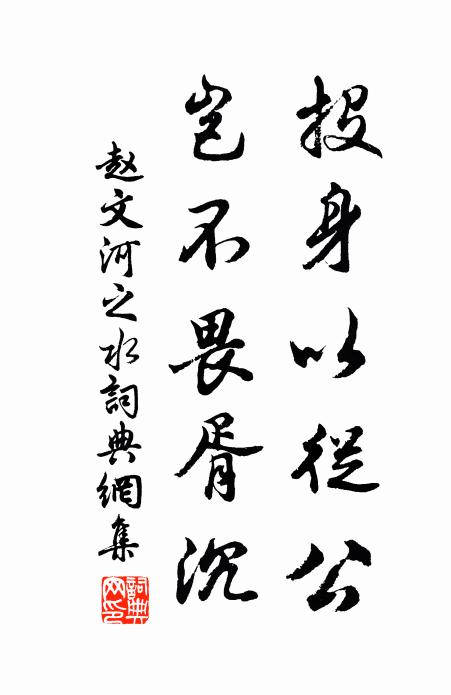 投身以從公
豈不畏胥沉
趙文河之水詞典網集
詞典網印